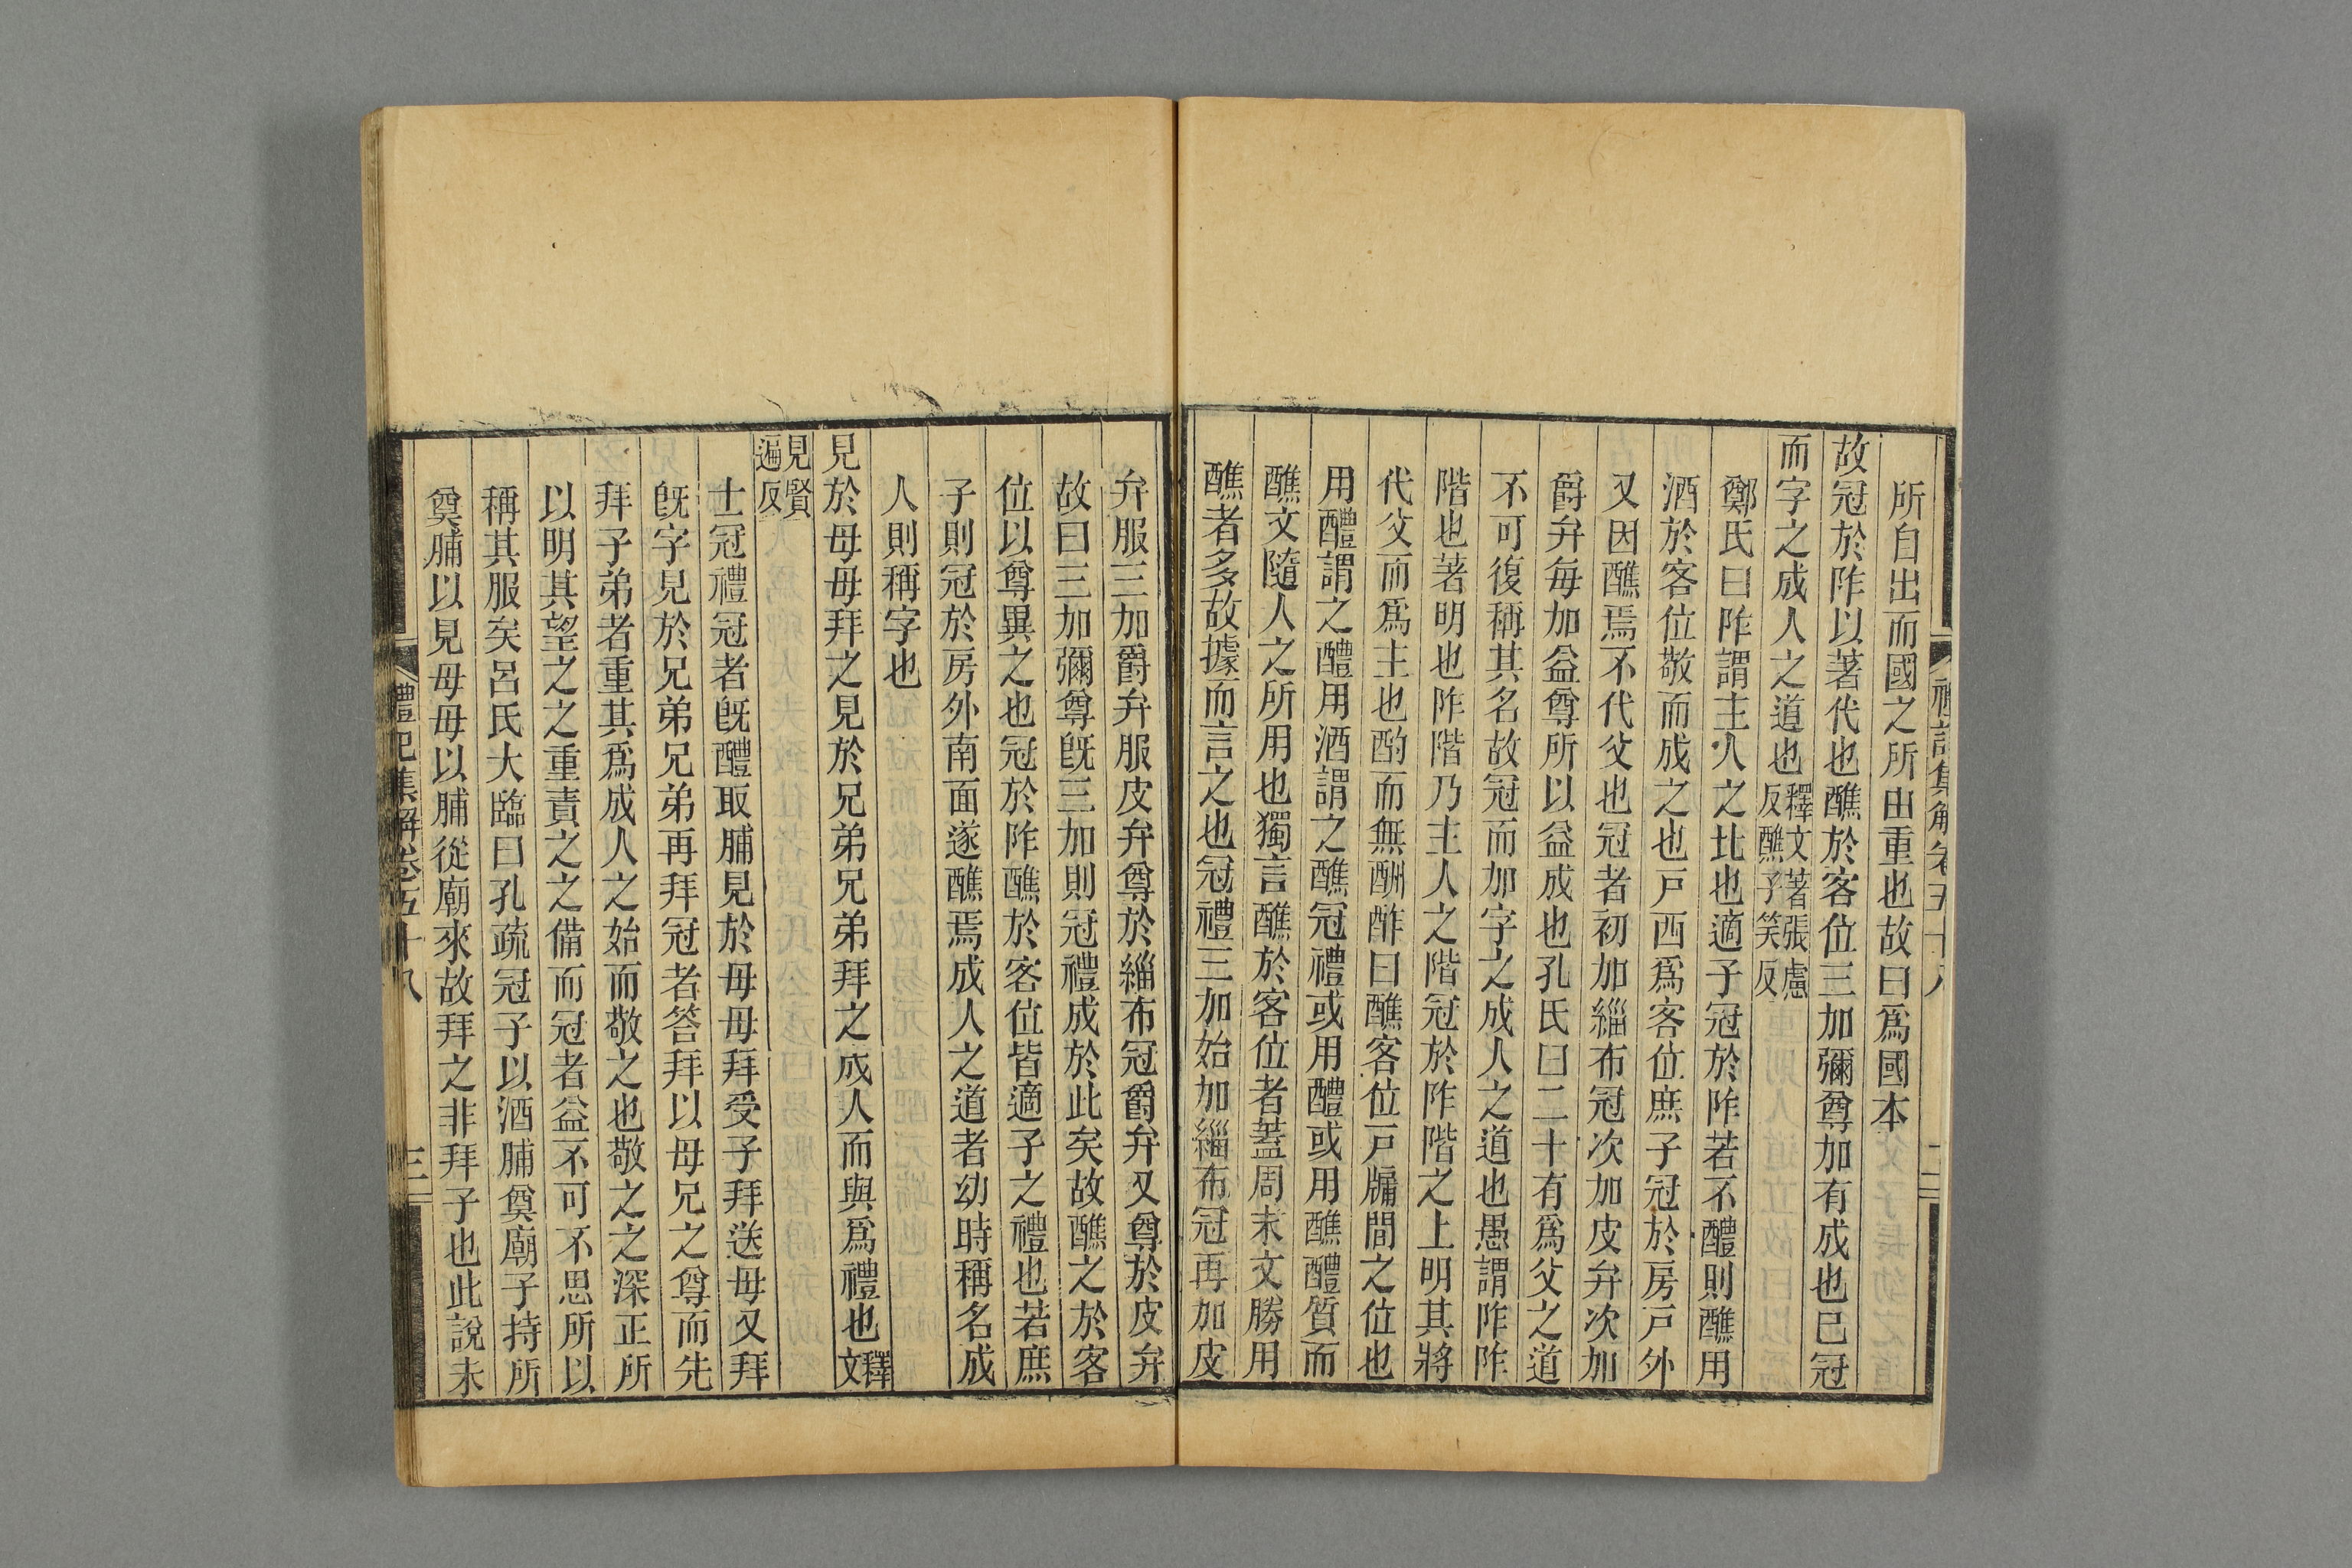 禮記集解卷五十八
二
所自出而國之所由重也故曰爲國本
故冠於阼以著代也醮於客位三加彌尊加有成也已冠
而字之成人之道也釋文著張慮反醮子笑反
鄭氏曰阼謂主人之北也適子冠於阼若不醴則醮用
酒於客位敬而成之也戸西爲客位庶子冠於房戸外
又因醮焉不代父也冠者初加緇布冠次加皮弁次加
爵弁每加益尊所以益成也孔氏曰二十有爲父之道
不可復稱其名故冠而加字之成人之道也愚謂阼阼
階也著明也阼階乃主人之階冠於阼階之上明其將
代父而爲主也酌而無酬酢曰醮客位戸牖間之位也
用醴謂之醴用酒謂之醮冠禮或用醴或用醮醴質而
醮文隨人之所用也獨言醮於客位者蓋周末文勝用
醮者多故據而言之也冠禮三加始加緇布冠再加皮
弁服三加爵弁服皮弁尊於緇布冠爵弁又尊於皮弁
故曰三加彌尊旣三加則冠禮成於此矣故醮之於客
位以尊異之也冠於阼醮於客位皆適子之禮也若庶
子則冠於房外南面遂醮焉成人之道者幼時稱名成
人則稱字也
見於母母拜之見於兄弟兄弟拜之成人而與爲禮也釋文
見賢遍反
士冠禮冠者旣醴取脯見於母母拜受子拜送母又拜
旣字見於兄弟兄弟再拜冠者答拜以母兄之尊而先
拜子弟者重其爲成人之始而敬之也敬之之深正所
以明其望之之重責之之備而冠者益不可不思所以
稱其服矣呂氏大臨曰孔疏冠子以酒脯奠廟子持所
奠脯以見母母以脯從廟來故拜之非拜子也此說未
禮記集解卷五十八
三